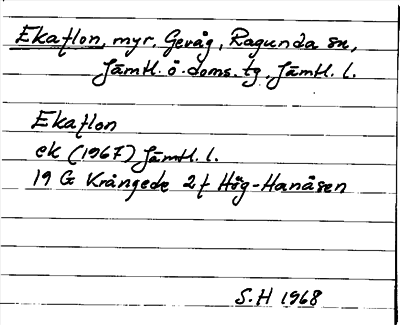 Ekaflon, myr, Gevåg, Ragunda sn,
Jämtl. ö. doms. tg, Jämtl. l.
Ekaflon
ek (1967) Jämtl. l.
19 G Krångede 2f Hög-Hanåsen
S.H 1968